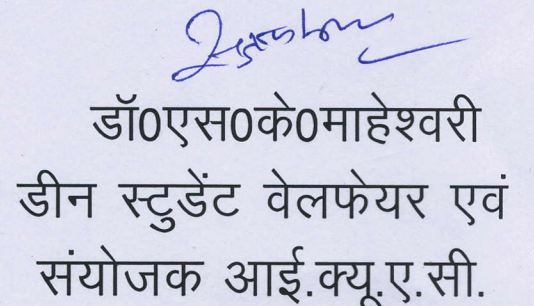 डॉ0एस0के0माहेश्वरी
डीन स्टुडेंट वेलफेयर एवं
संयोजक आई.क्यू.ए.सी.